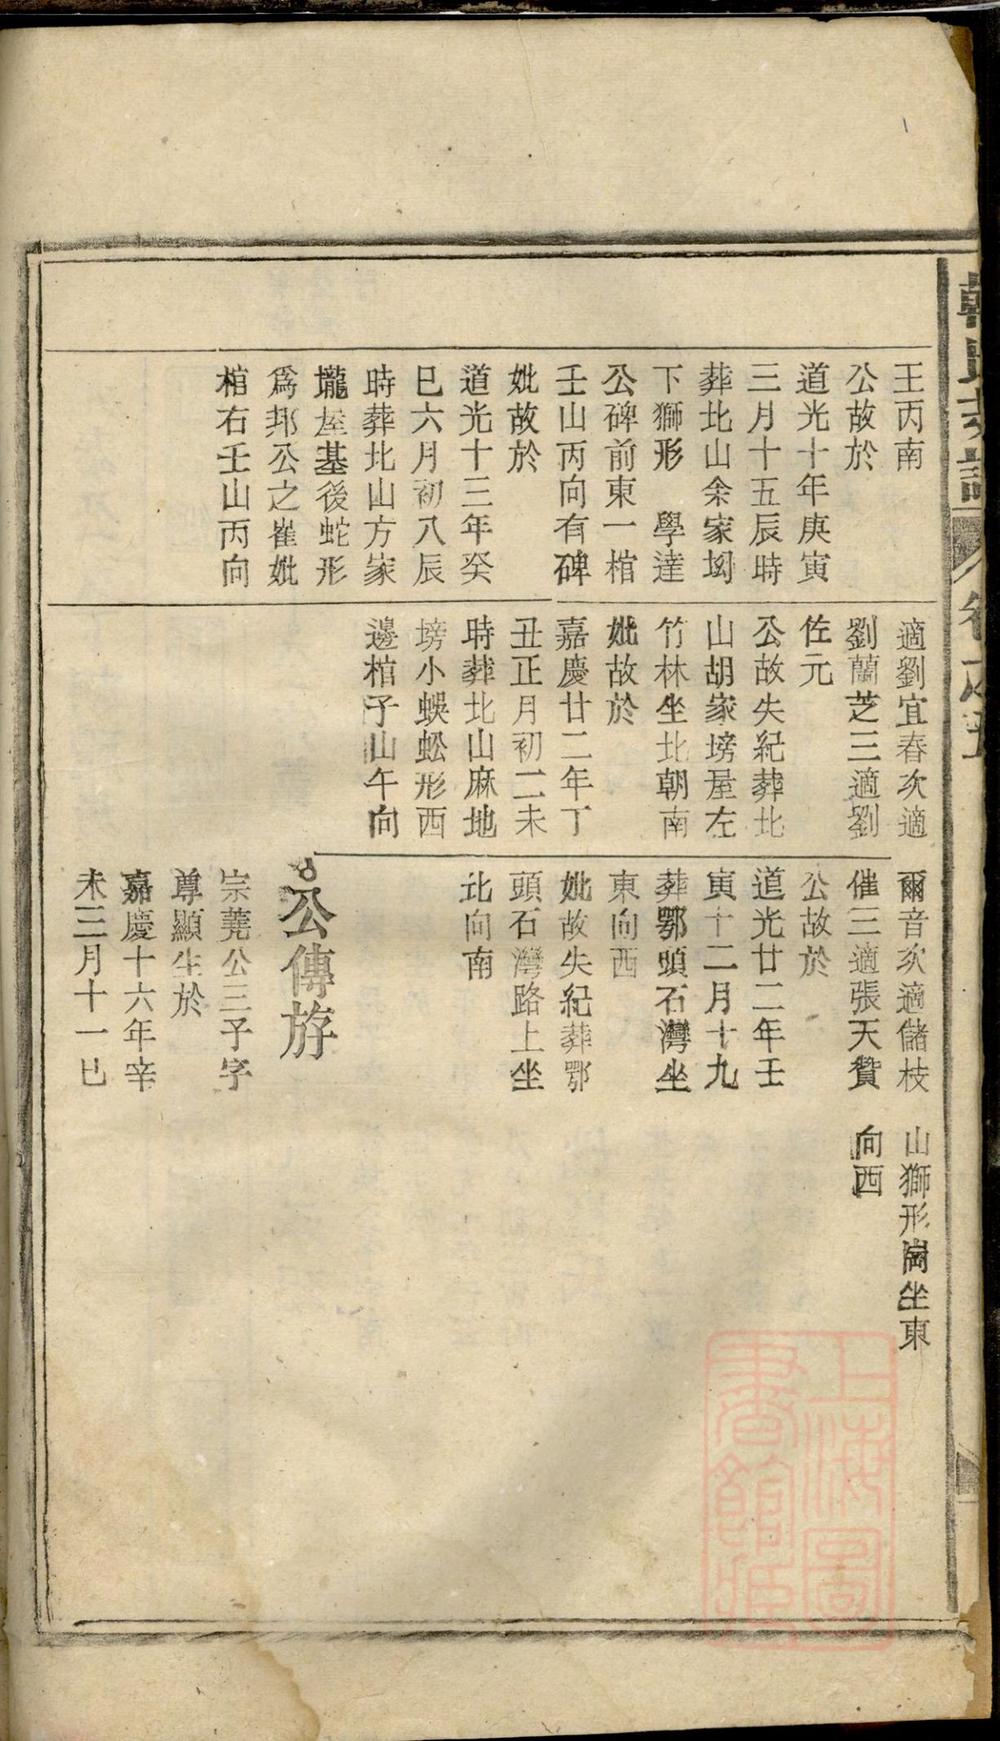 王丙南
公故於
道光十年庚寅
三月十五辰時
葬北山余家坳
下獅形 學達
公碑前東一棺
壬山丙向有碑
妣故於
道光十三年癸
巳六月初八辰
時葬北山方家
壠屋基後蛇形
爲邦公之崔妣
棺右壬山丙向
適劉宜春次適
劉蘭芝三適劉
佐元
公故失紀葬北
山胡家塝屋左
竹林坐北朝南
妣故於
嘉慶廿二年丁
丑正月初二未
時葬北山麻地
塝小蜈蚣形西
邊棺子山午向
爾音次適儲枝
催三適張天贊
公故於
道光廿二年壬
寅十二月十九
葬鄂頭石灣坐
東向西
妣故失紀葬鄂
頭石灣路上坐
北向南
公傳斿
宗蕘公三子字
尊顯生於
嘉慶十六年辛
未三月十一巳
山獅形崗坐東
向西
上海圖
書館藏